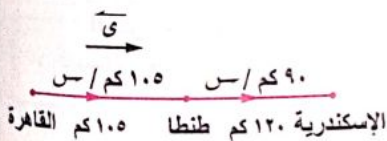 ى
١٠٥ كم / س ٩٠ كم / س
القاهرة ١٠٥ كم طنطا ١٢٠ كم الإسكندرية